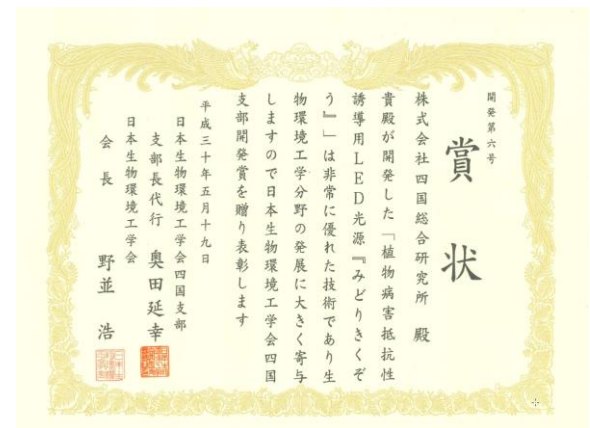 開発第六号
賞状
株式会社四国総合研究所 殿
貴殿が開発した「植物病害抵抗性
誘導用LED光源『みどりきくぞ
う』」は非常に優れた技術であり生
物環境工学分野の発展に大きく寄与
しますので日本生物環境工学会四国
支部開発賞を贈り表彰します
平成三十年五月十九日
日本生物環境工学会四国支部
支部長代行 奥田延幸
日本生物環境工学会
会長 野並浩